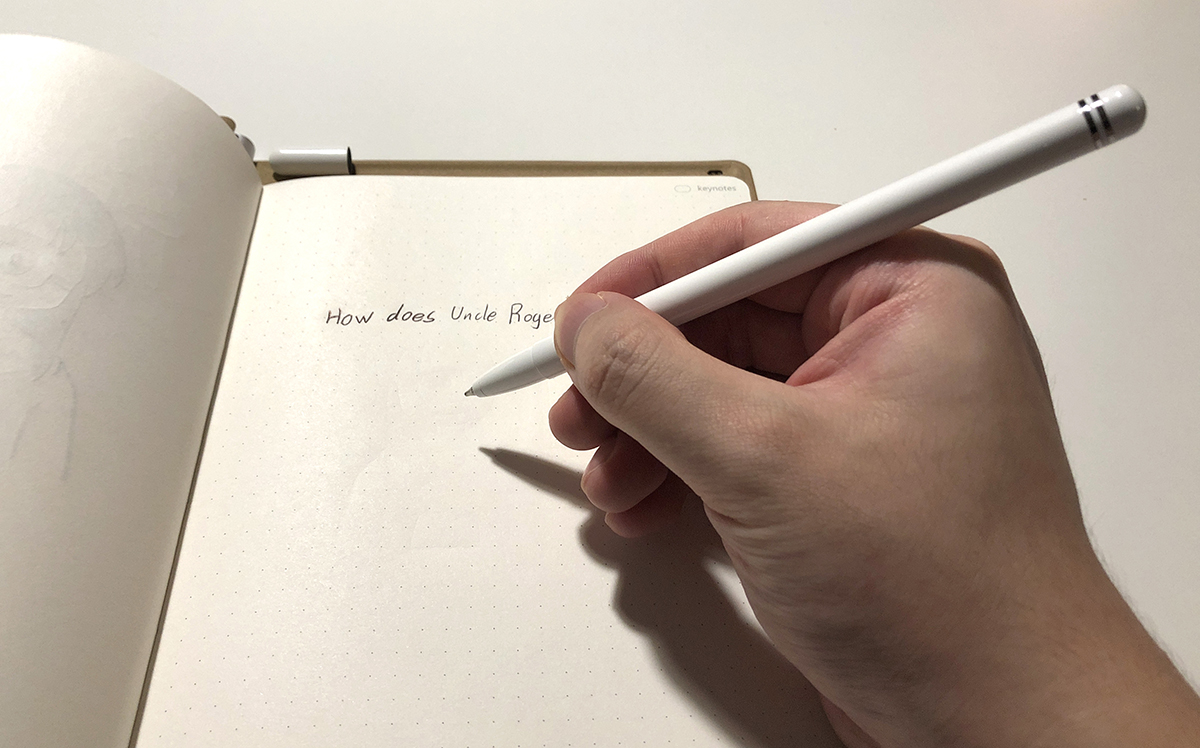 keynotes
How does Uncle Roge